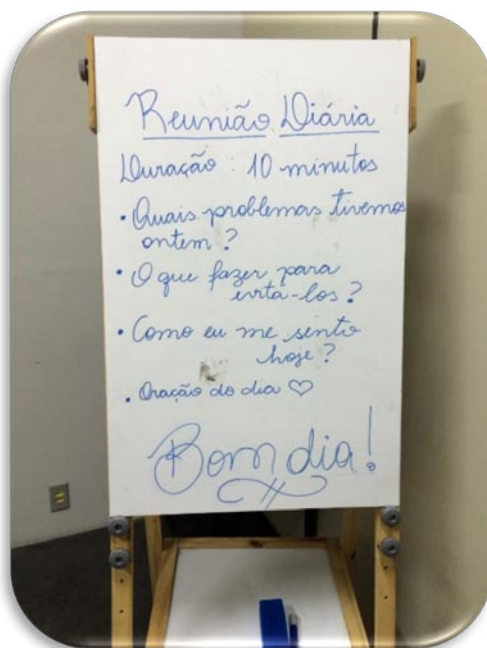 Reunião Diária
Duração : 10 minutos
• Quais problemas tivemos
ontem ?
• O que fazer para
evitá-los ?
• Como eu me sinto
hoje ?
• Oração do dia ♡
Bom dia!